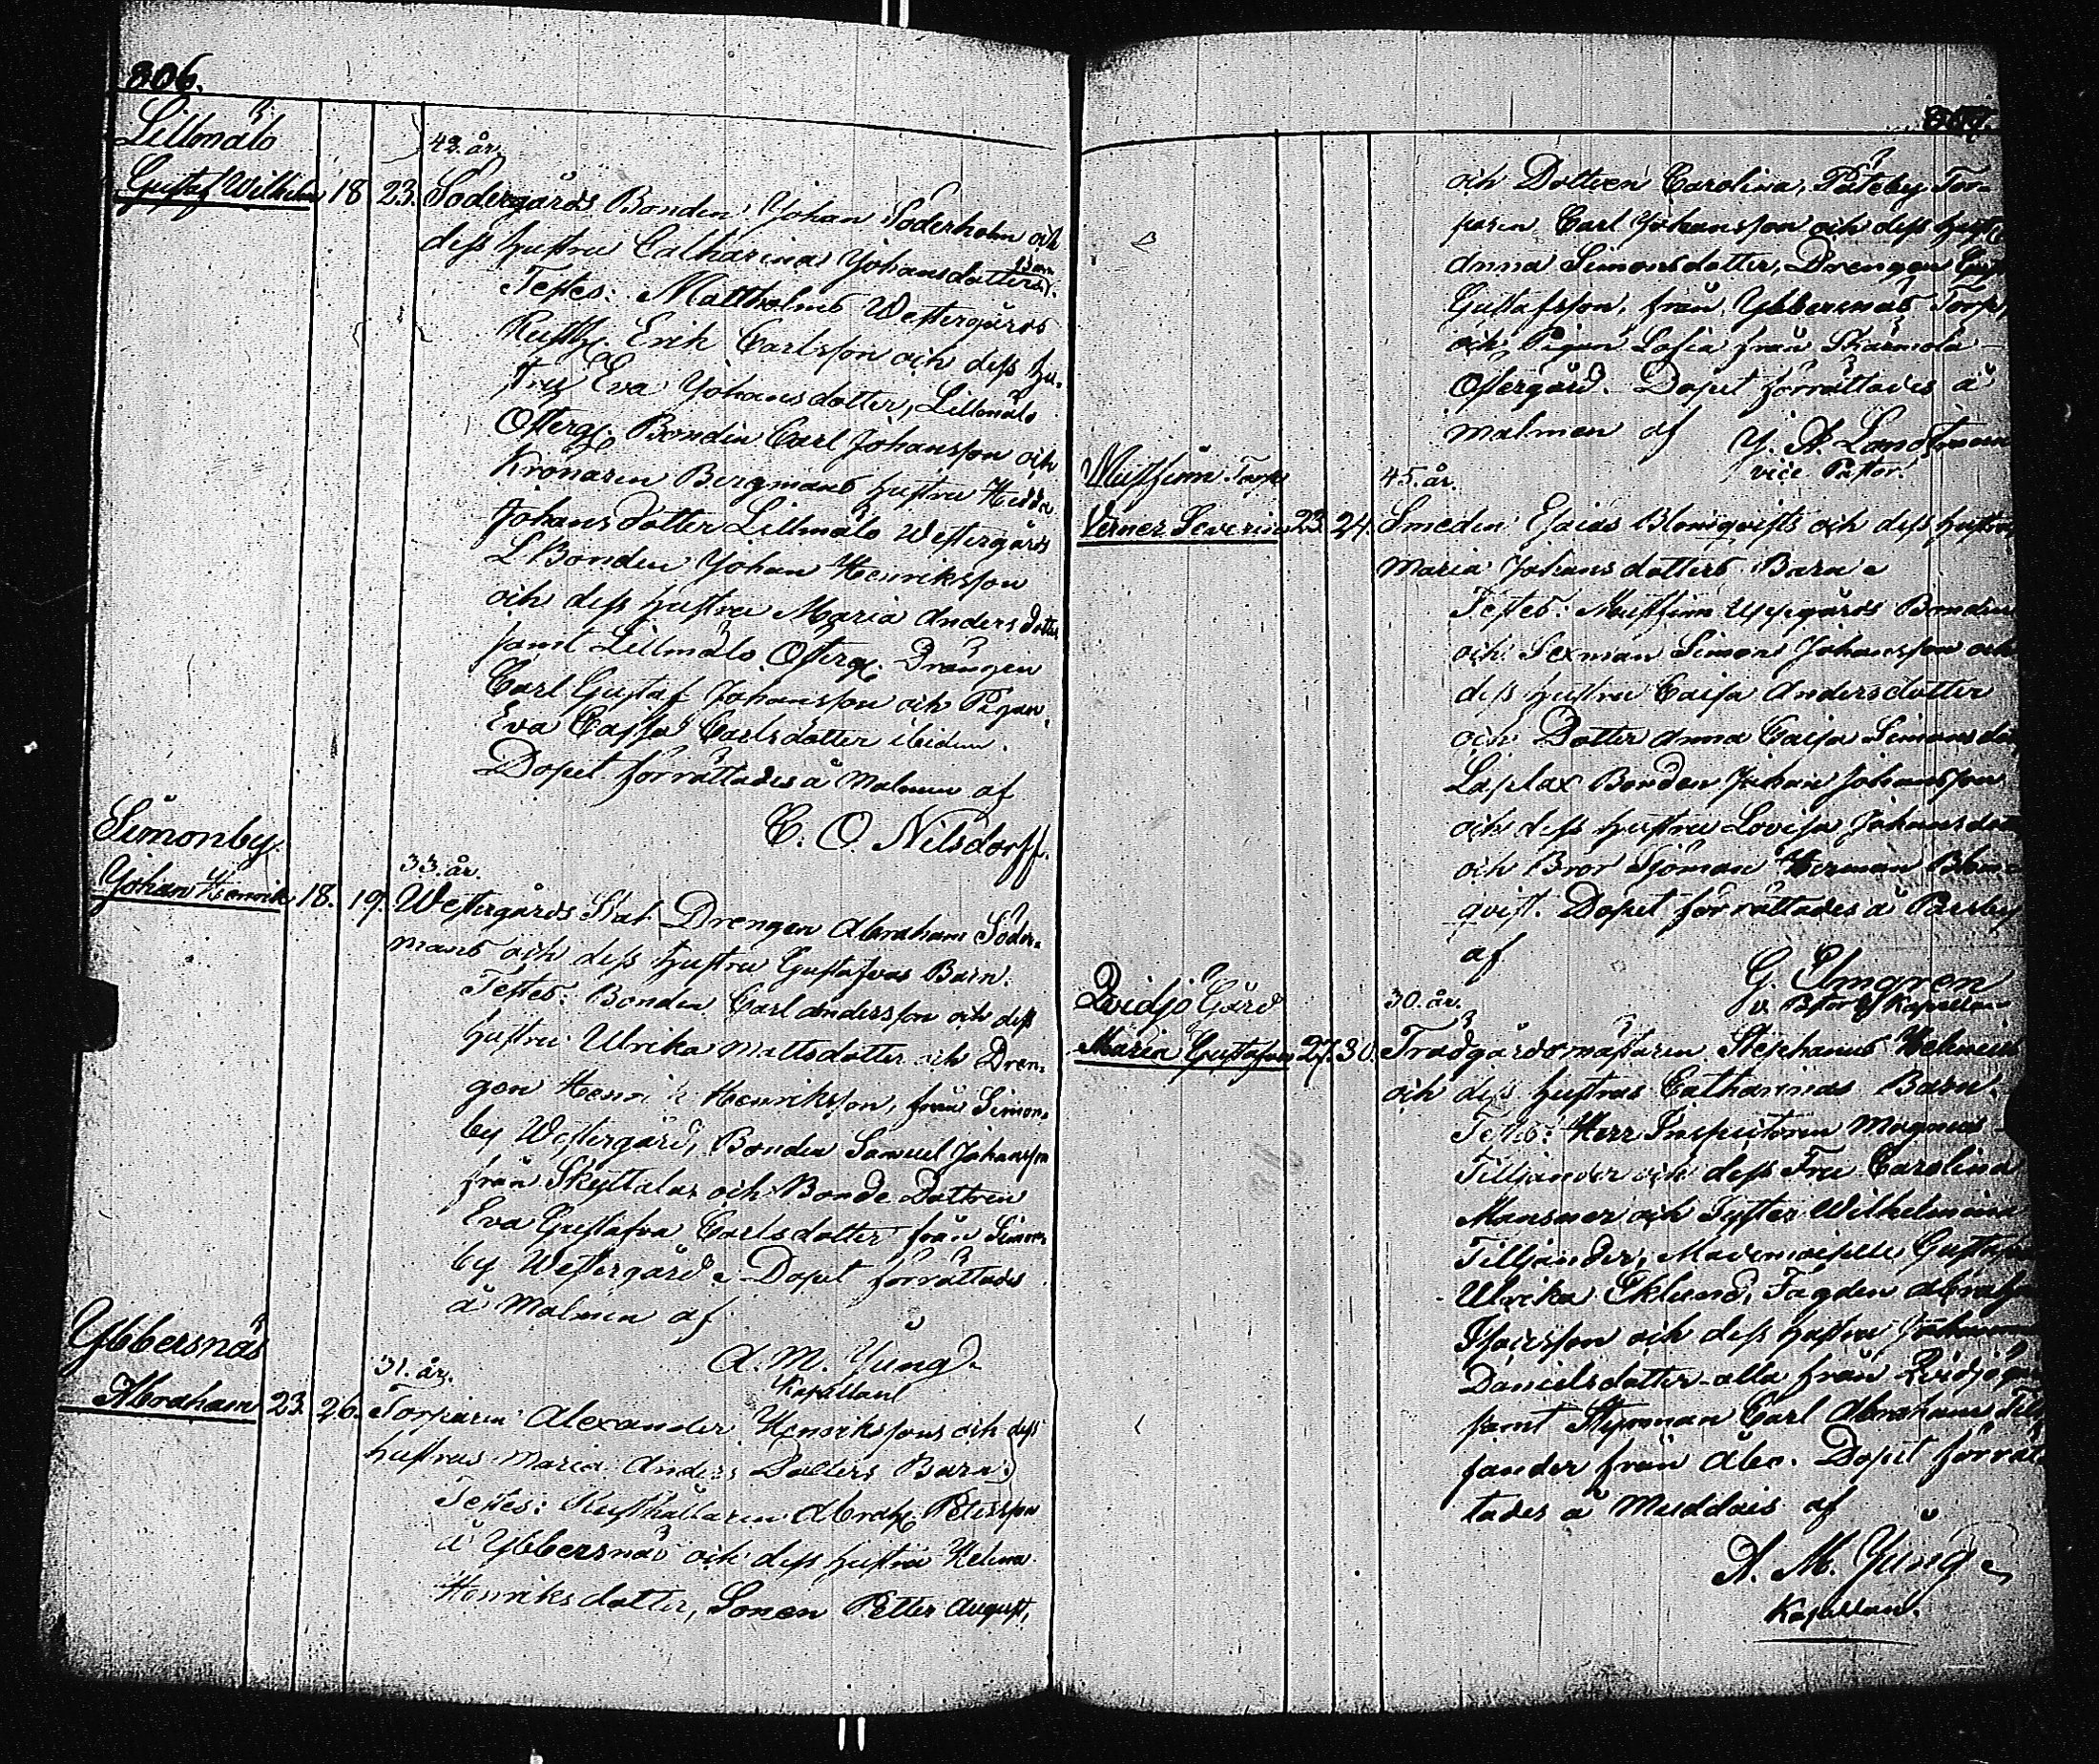 306.
Lillmälö
42. år.
Gustaf Wilhelm 18 23. Södergårds Bonden Johan Söderholm och
dess hustru Catharina Johansdotters Barn
Testes: Mattholms Westergårds
Rusth. Erik Carlsson och dess hu-
stru Eva Johansdotter, Lillmälö
Österg. Bonden Carl Johansson och
Kronaren Bergmans hustru Hedda
Johansdotter Lillmälö Westergårds
L Bonden Johan Henriksson
och dess hustru Maria Andersdotter
samt Lillmälö Österg. Drängen
Carl Gustaf Johansson och Pigan
Eva Cajsa Carlsdotter ibidem.
Dopet förrättades å Malmen af
C. O. Nilsdorff.
Simonby
33. år.
Johan Henrik 18. 19. Westergårds Stat Drengen Abraham Söder-
mans och dess hustru Gustafvas Barn.
Testes: Bonden Carl Andersson och dess
hustru Ulrika Mattsdotter och Dren-
gen Henrik Henriksson, från Simon-
by Westergård, Bonden Samuel Johansson
från Skyttala och Bonde Dottren
Eva Gustafva Carlsdotter från Simon-
by Westergård. Dopet förrättades
å Malmen af
A. M. Jung
Kapellan
Ybbersnäs
31. år.
Abraham 23. 26. Torparen Alexander Henrikssons och dess
hustrus Maria Anders Dotters Barn.
Testes: Rusthållaren Abrah. Petersson
å Ybbersnäs och dess hustru Helena
Henriksdotter, Sonen Petter August,
307.
och Dottren Carolina, Påteby Tor-
paren Carl Johansson och dess hustru
Anna Simonsdotter, Drengen
Gustafsson, från Ybbersnäs Torp,
och Pigan Sofia från Skärmola
Östergård. Dopet förrättades å
Malmen af J. A. Landtman
vice Pastor.
Mustfinn Torp
45. år.
Verner Severin 23. 24. Smeden Esaias Blomqvists och dess hustru
Maria Johansdotters Barn
Testes: Mustfinn Uppgårds Bonden
och Sexman Simon Johansson och
dess hustru Caisa Andersdotter
och Dotter Anna Caisa Simonsdot
Laplax Bonden Johan Johansson
och dess hustru Lovisa Johansdot
och Bror Sjöman Herman Blom-
qvist. Dopet förrättades å Parsby
af
G. Elmgren
v. Pastor & Kapellan
Qvidjo Gård
30. år.
Maria Gustafva 27. 30. Trädgårdsmästaren Stephanus
och dess hustrus Catharinas Barn.
Testes: Herr Inspectoren Magnus
Tilljander och dess Fru Carolina
Mansner och Syster Wilhelmina
Tilljander, Mademoiselle Gustafva
Ulrika Eklund, Fogden Abraham
Isaksson och dess hustru Johanna
Danielsdotter alla från Qvidjo gård
samt Styrman Carl Abraham Til
jander från Åbo. Dopet förrät-
tades å Muddais af
A. M. Jung
Kapellan.